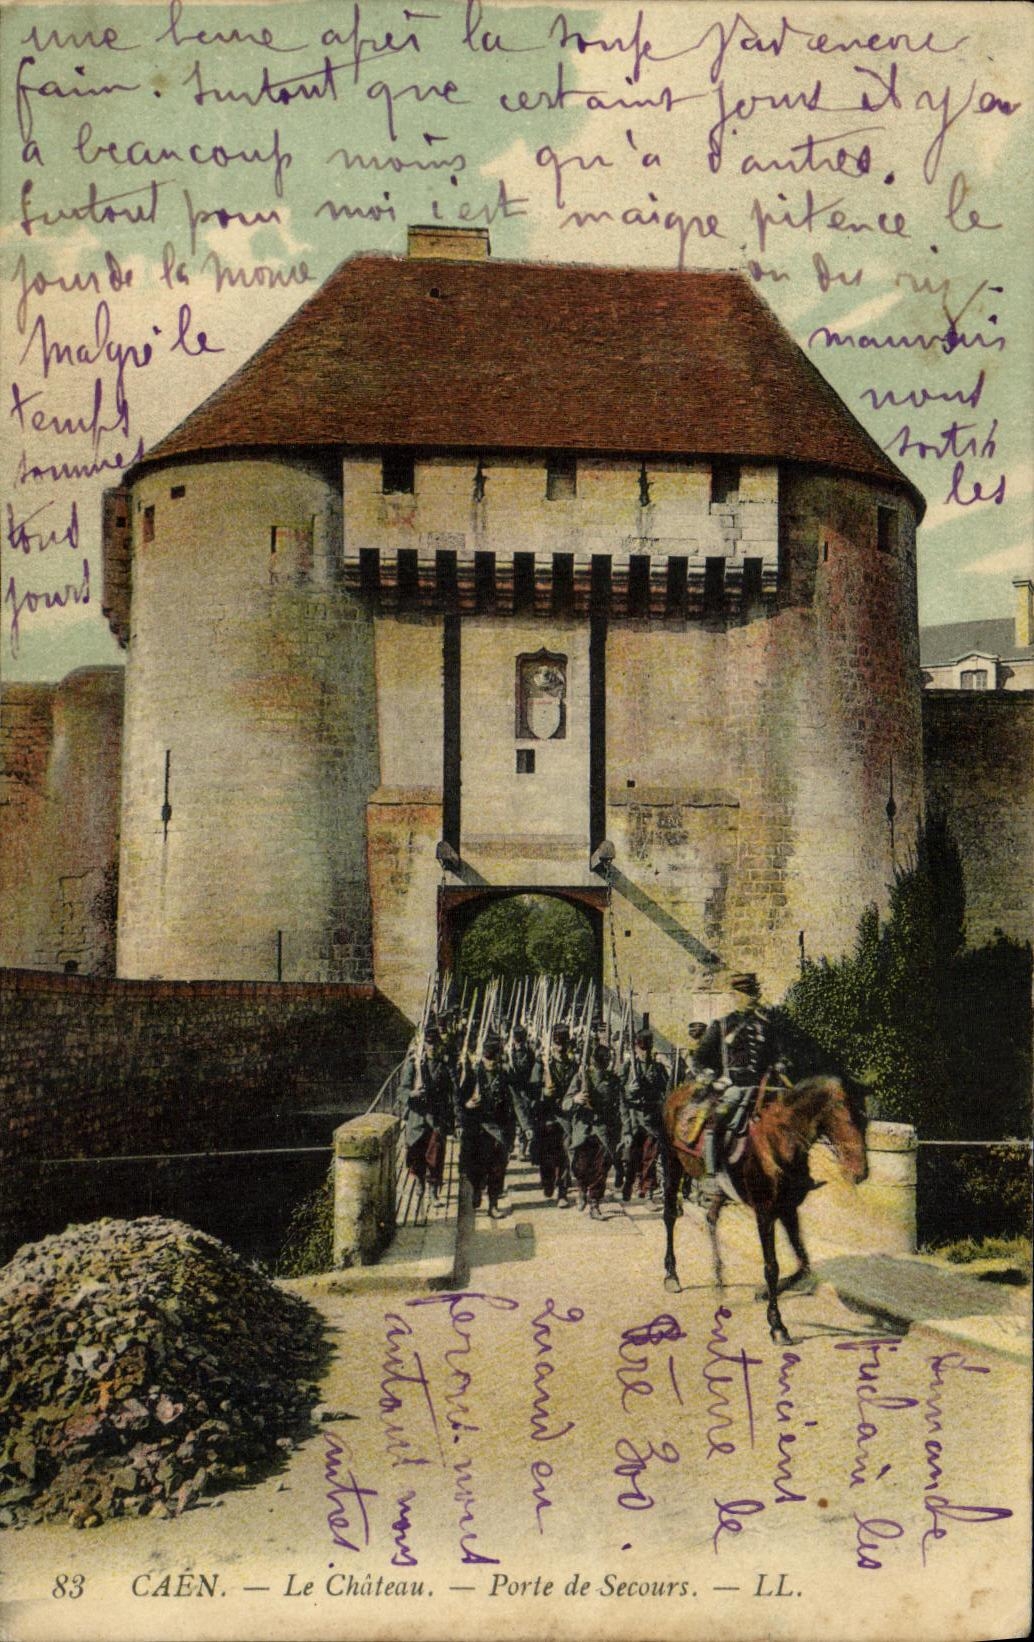 une heure après la soupe j'ai encore
faim. Surtout que certains jours il y en
a beaucoup moins qu'à d'autres.
Surtout pour moi c'est maigre pitence le
jour de la morue ou du riz.
Malgré le mauvais
temps nous
sommes sortis
tous les
jours
Dimanche
prochain les
anciens
entrent le
Père 200.
Quand en
ferons-nous
autant nous
autres.
83 CAEN. — Le Château. — Porte de Secours. — LL.